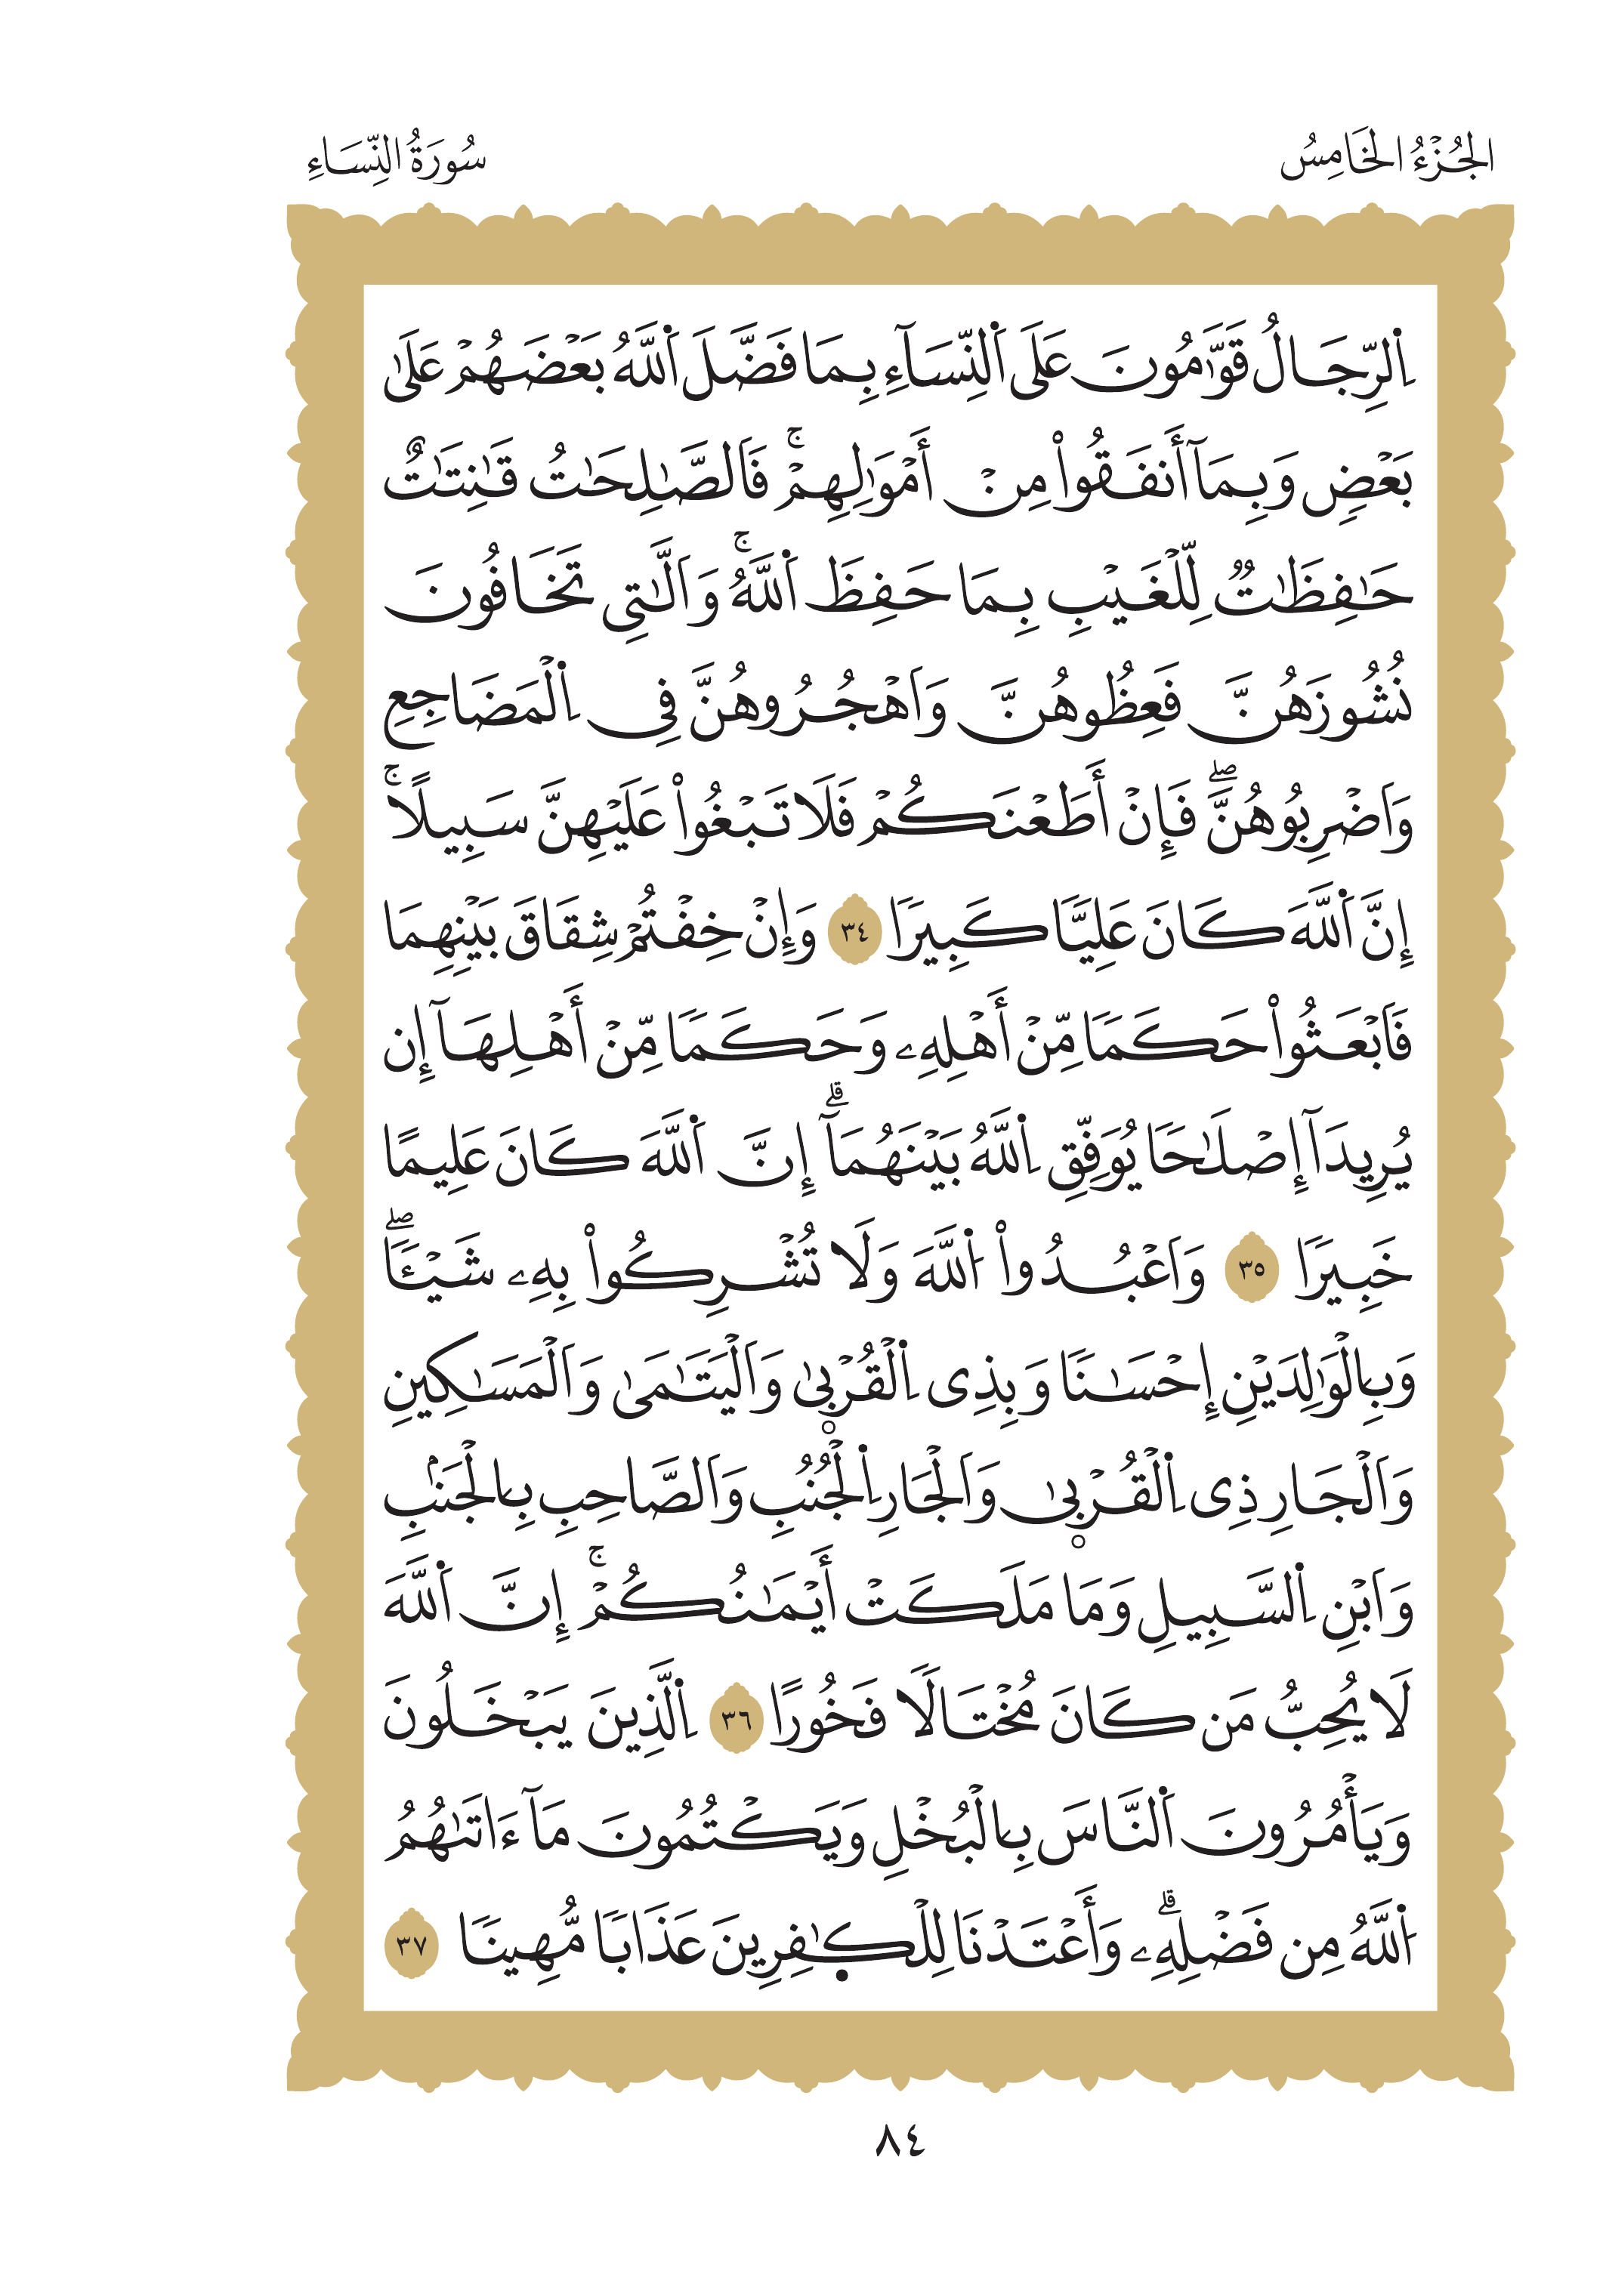 الجُزْءُ الخَامِسُ
سُورَةُ النِّسَاءِ
اِ۬لرِّجَالُ قَوَّٰمُونَ عَلَى اَ۬لنِّسَآءِ بِمَا فَضَّلَ اَ۬للَّهُ بَعْضَهُمْ عَلَىٰ
بَعْضٍ وَبِمَآ أَنفَقُواْ مِنْ أَمْوَٰلِهِمْۚ فَالصَّٰلِحَٰتُ قَٰنِتَٰتٌ
حَٰفِظَٰتٌ لِّلْغَيْبِ بِمَا حَفِظَ اَ۬للَّهُۚ وَالَّٰتِي تَخَافُونَ
نُشُوزَهُنَّ فَعِظُوهُنَّ وَاهْجُرُوهُنَّ فِي اِ۬لْمَضَاجِعِ
وَاضْرِبُوهُنَّۖ فَإِنْ أَطَعْنَكُمْ فَلَا تَبْغُواْ عَلَيْهِنَّ سَبِيلًاۚ
إِنَّ اَ۬للَّهَ كَانَ عَلِيّٗا كَبِيرٗا ٣٤ وَإِنْ خِفْتُمْ شِقَاقَ بَيْنِهِمَا
فَابْعَثُواْ حَكَمٗا مِّنْ أَهْلِهِۦ وَحَكَمٗا مِّنْ أَهْلِهَآ إِن
يُرِيدَآ إِصْلَٰحٗا يُوَفِّقِ اِ۬للَّهُ بَيْنَهُمَآۗ إِنَّ اَ۬للَّهَ كَانَ عَلِيمًا
خَبِيرٗا ٣٥ وَاعْبُدُواْ اُ۬للَّهَ وَلَا تُشْرِكُواْ بِهِۦ شَيْـٔٗاۖ
وَبِالْوَٰلِدَيْنِ إِحْسَٰنٗا وَبِذِي اِ۬لْقُرْب۪ىٰ وَالْيَتَٰمَىٰ وَالْمَسَٰكِينِ
وَالْجَارِ ذِي اِ۬لْقُرْب۪ىٰ وَالْجَارِ اِ۬لْجُنُبِ وَالصَّاحِبِ بِالْجَنۢبِ
وَابْنِ اِ۬لسَّبِيلِ وَمَا مَلَكَتْ أَيْمَٰنُكُمْۚ إِنَّ اَ۬للَّهَ
لَا يُحِبُّ مَن كَانَ مُخْتَالٗا فَخُورًا ٣٦ اِ۬لَّذِينَ يَبْخَلُونَ
وَيَأْمُرُونَ اَ۬لنَّاسَ بِالْبُخْلِ وَيَكْتُمُونَ مَآ ءَاتَىٰهُمُ
اُ۬للَّهُ مِن فَضْلِهِۦۗ وَأَعْتَدْنَا لِلْكٰ۪فِرِينَ عَذَابٗا مُّهِينٗا ٣٧
٨٤